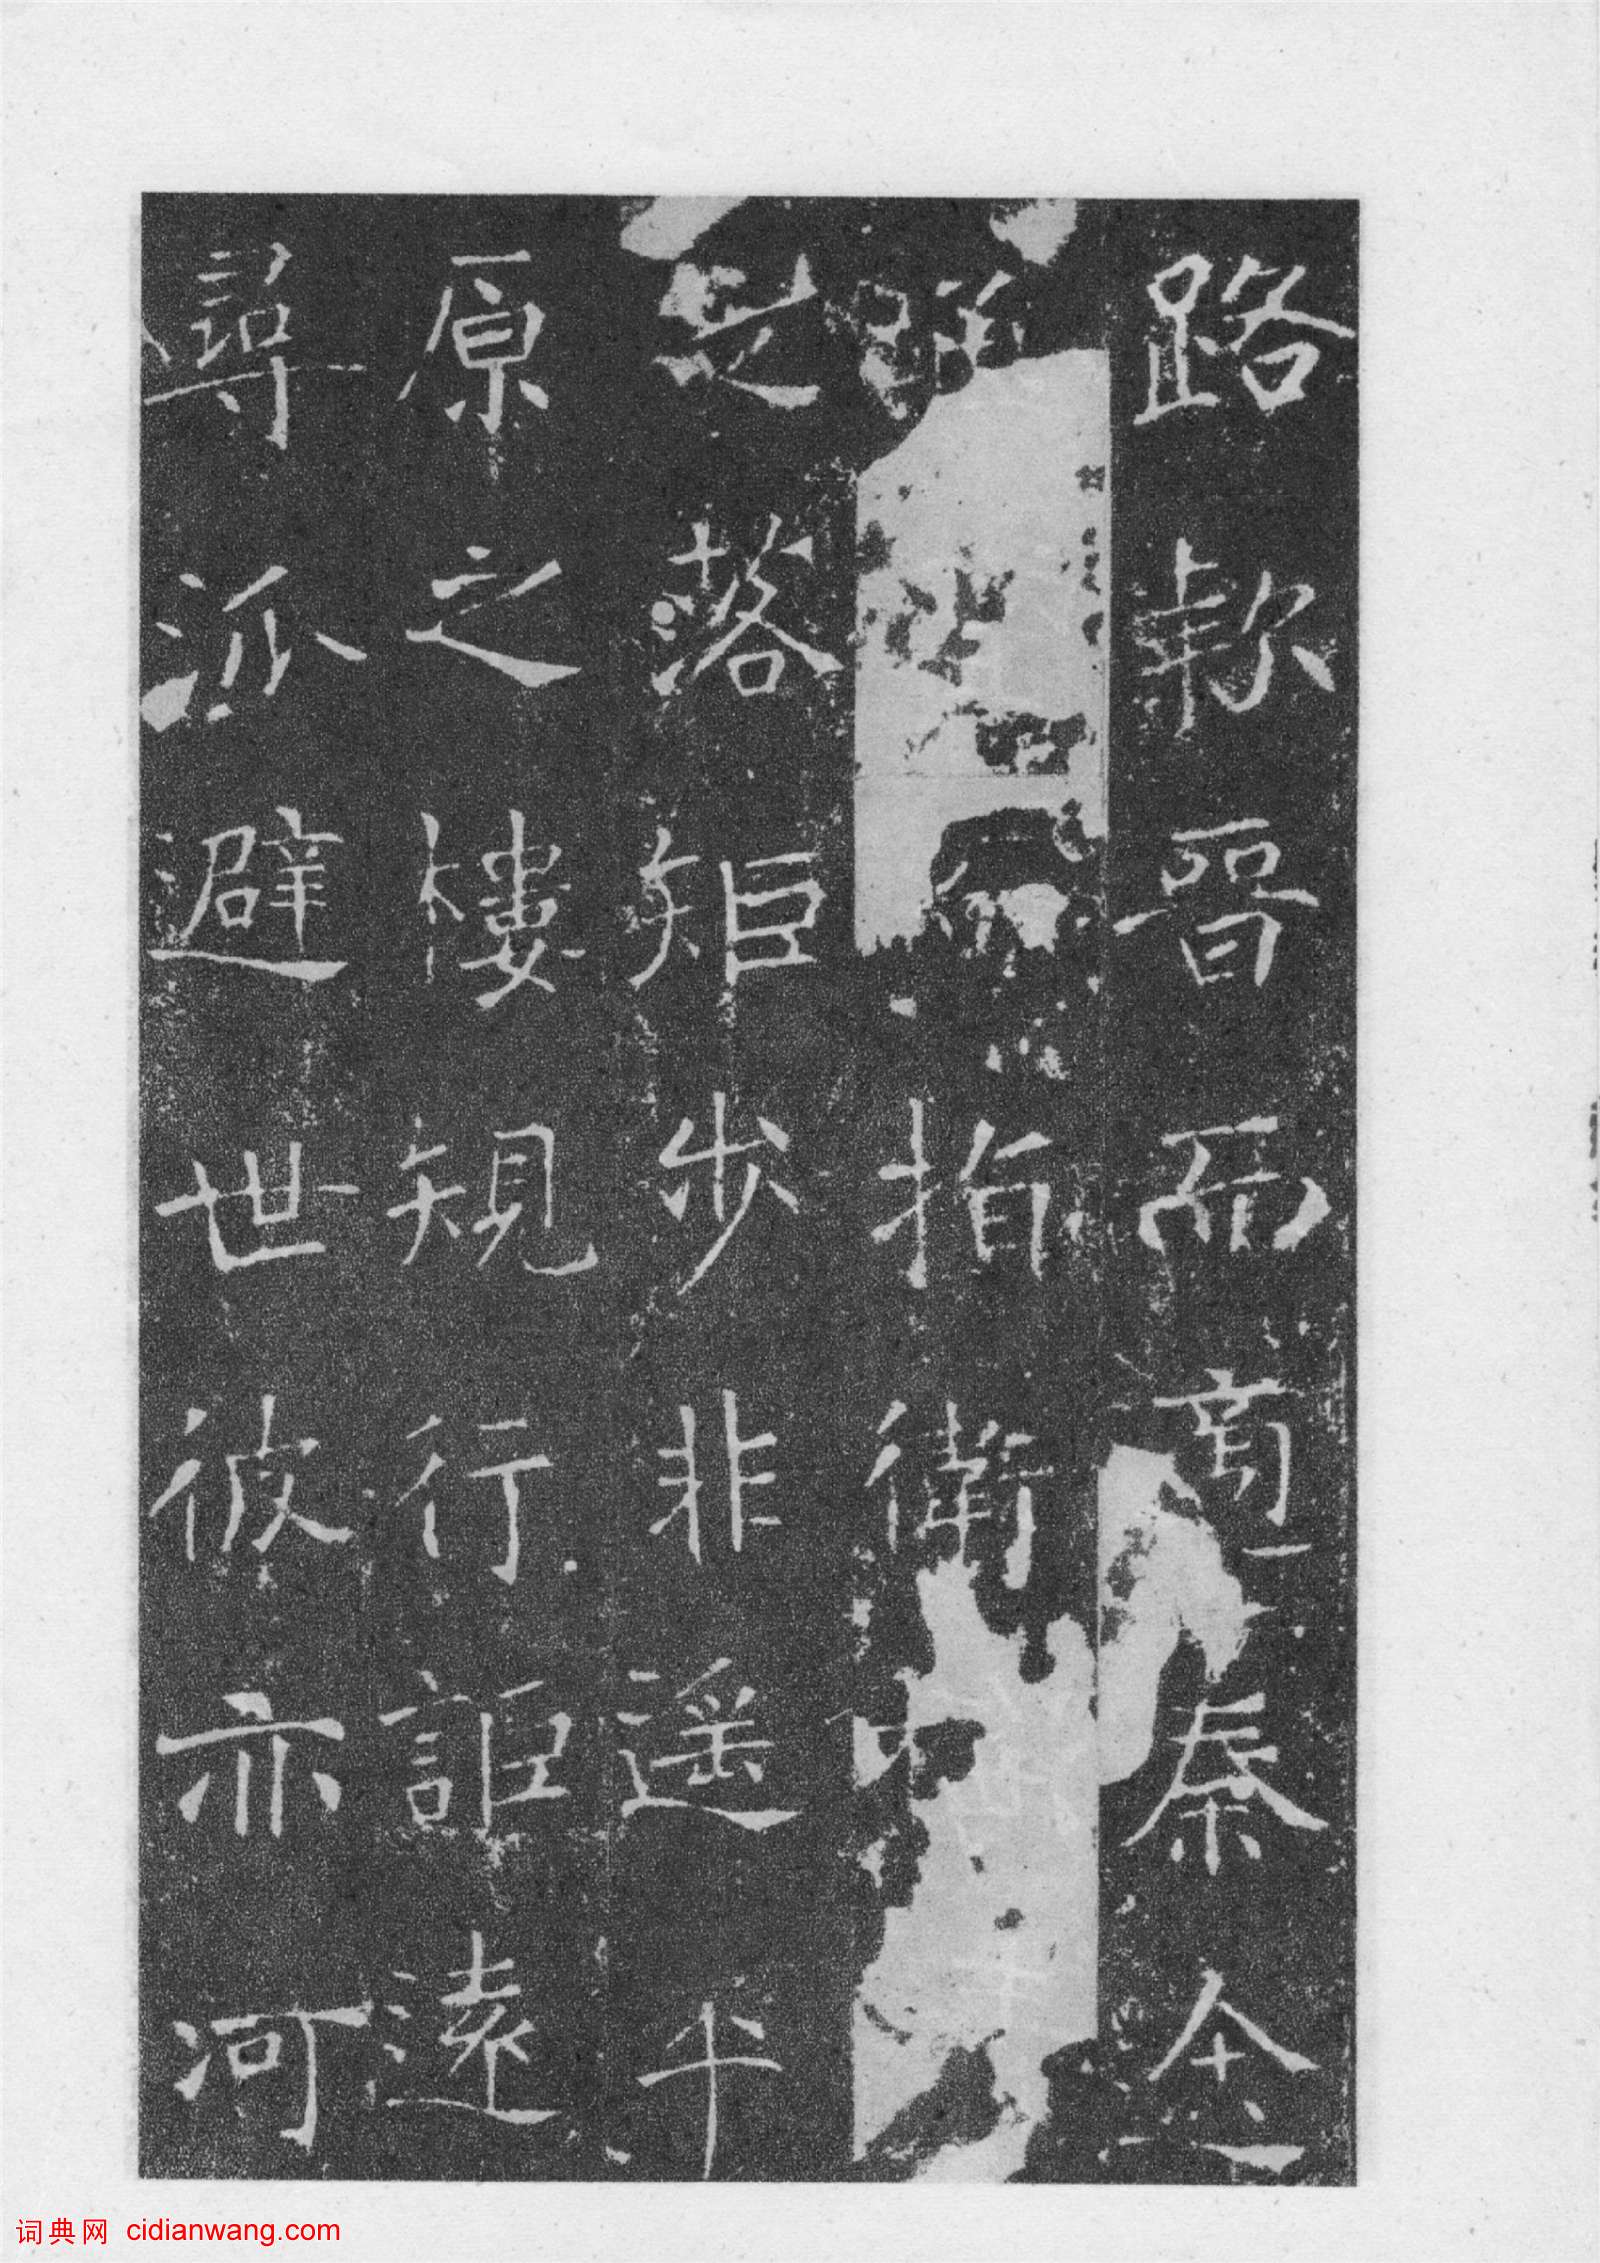 路軟晉而秦金
指衛
落矩步非遥平
原之樓規行詎遠
尋派避世彼亦河
词典网 cidianwang.com